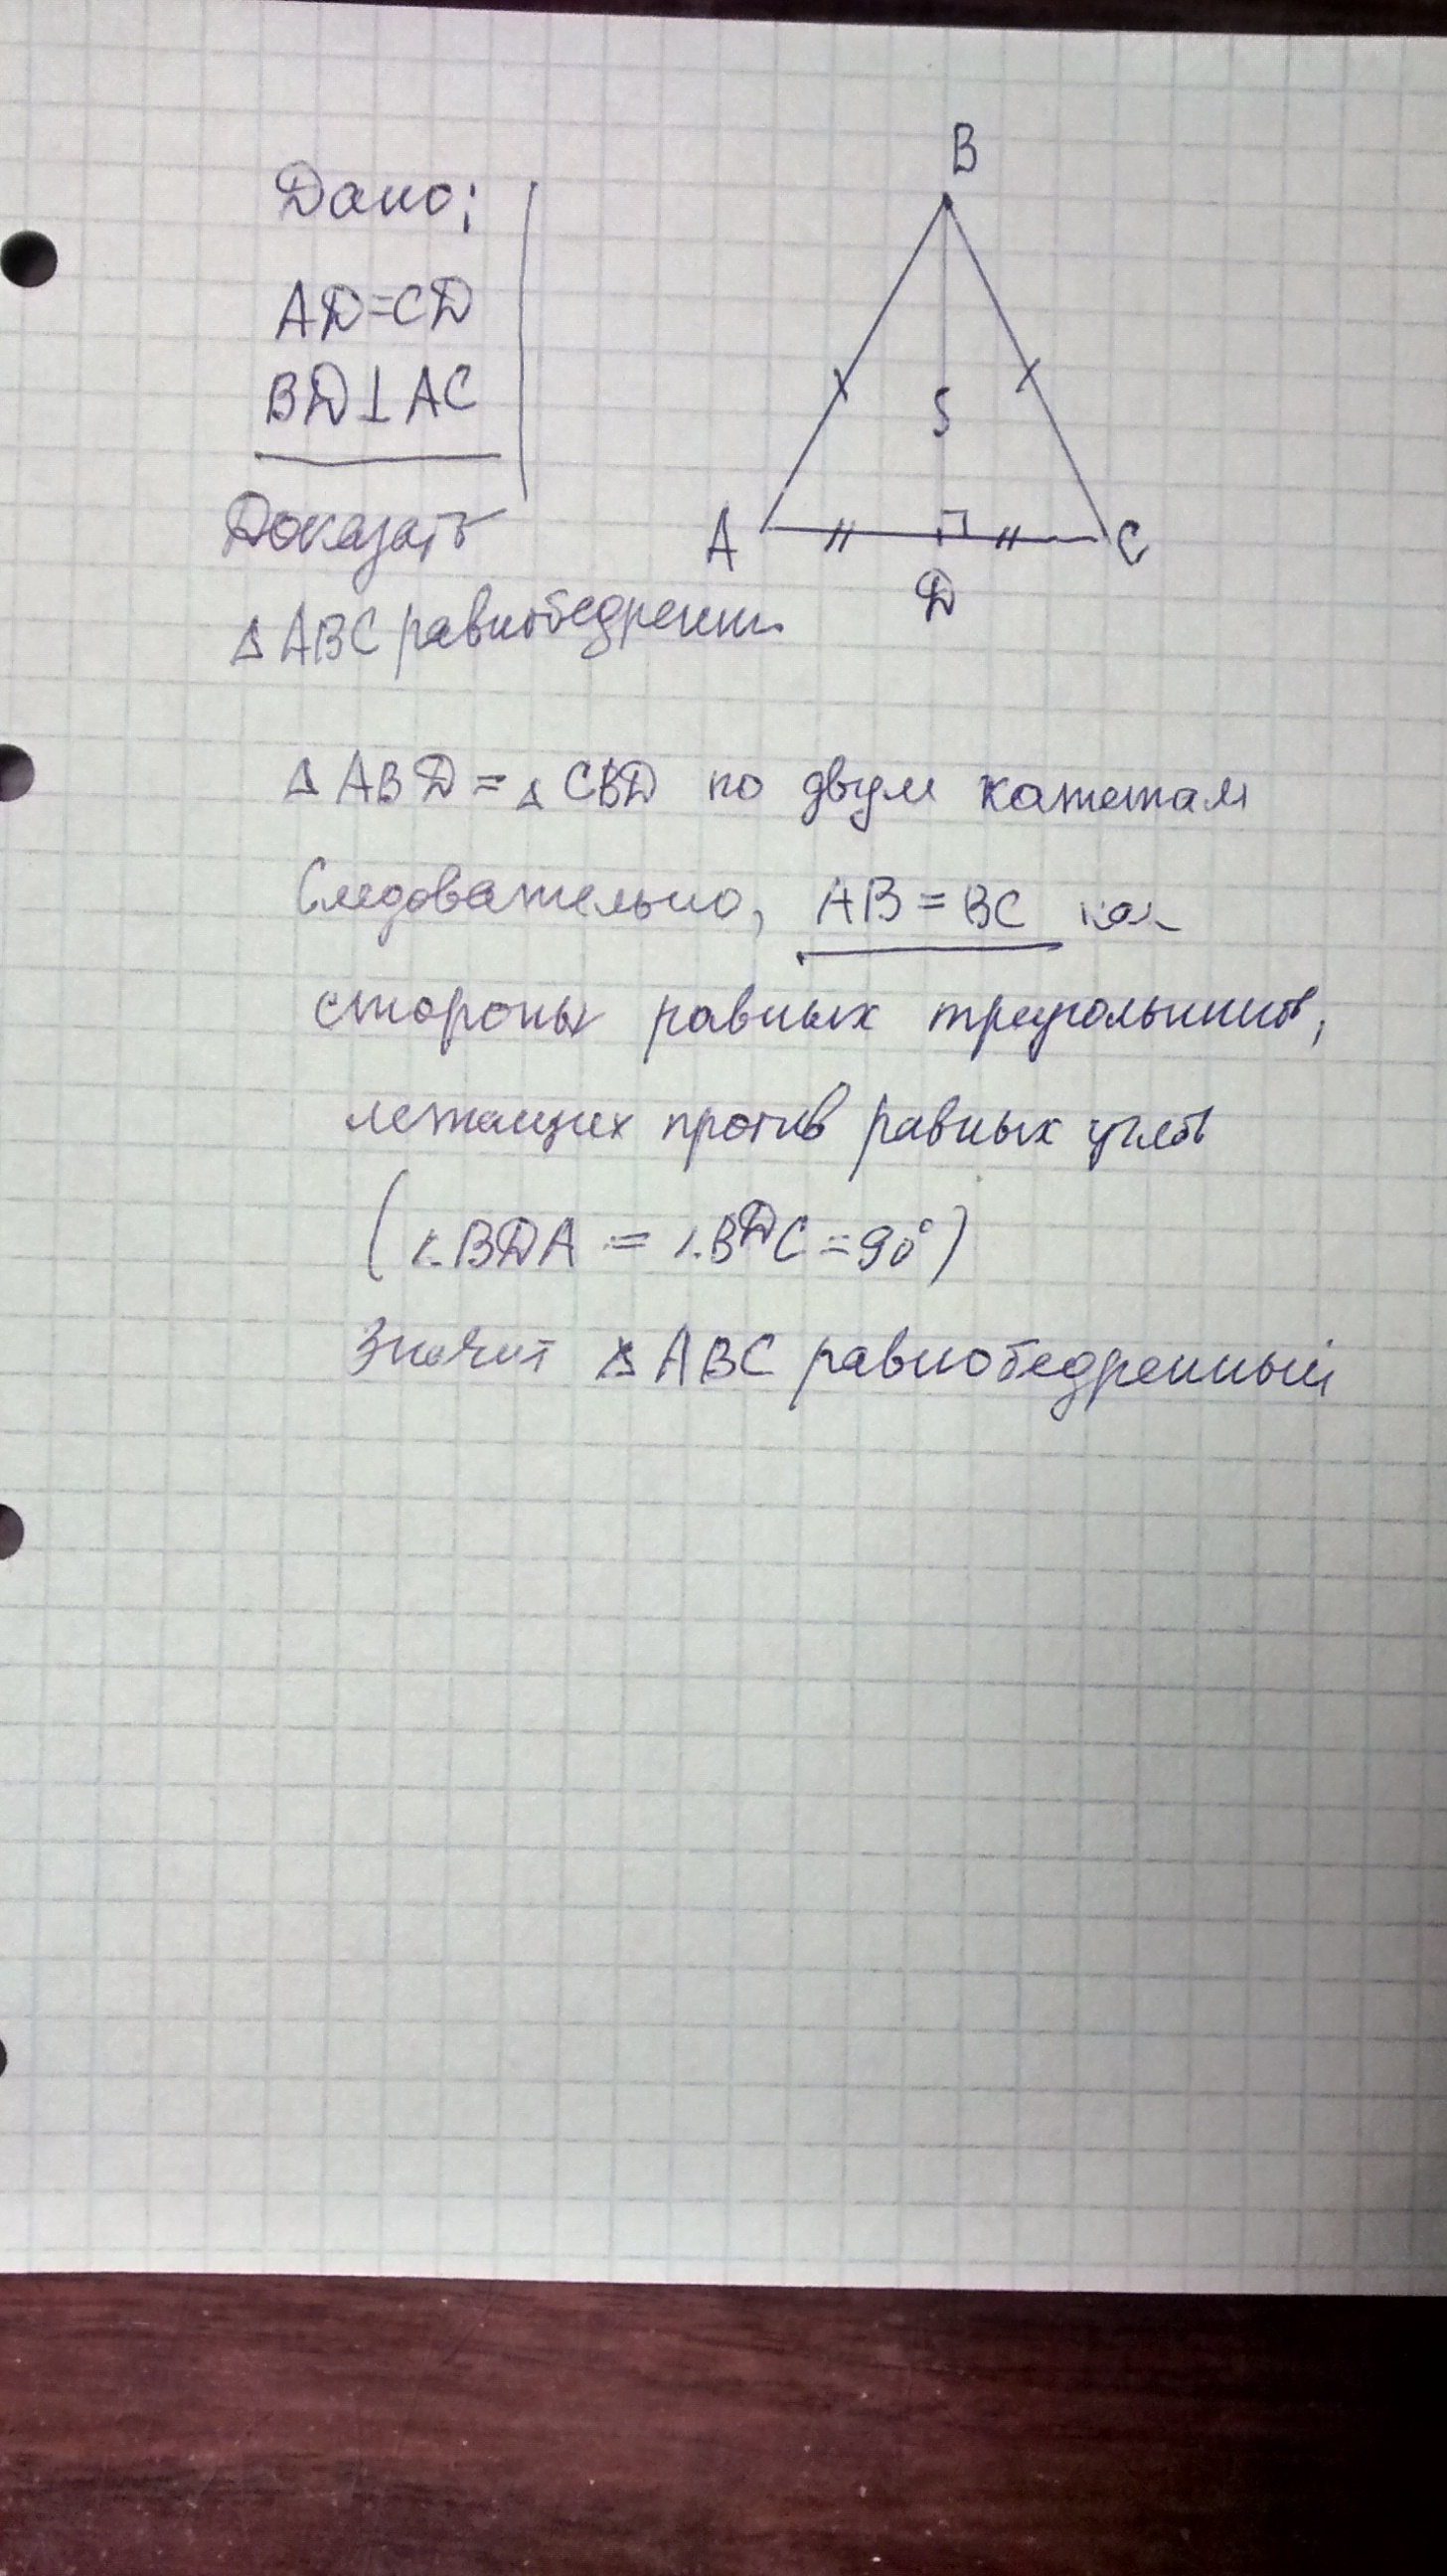 Дано:
AD=CD
BD⊥AC
Доказать
△ABC равнобедренн.
B
S
A
C
D
△ABD=△CBD по двум катетам
Следовательно, AB=BC как
стороны равных треугольников,
лежащих против равных углов
(∠BDA = ∠BDC=90°)
Значит △ABC равнобедренный